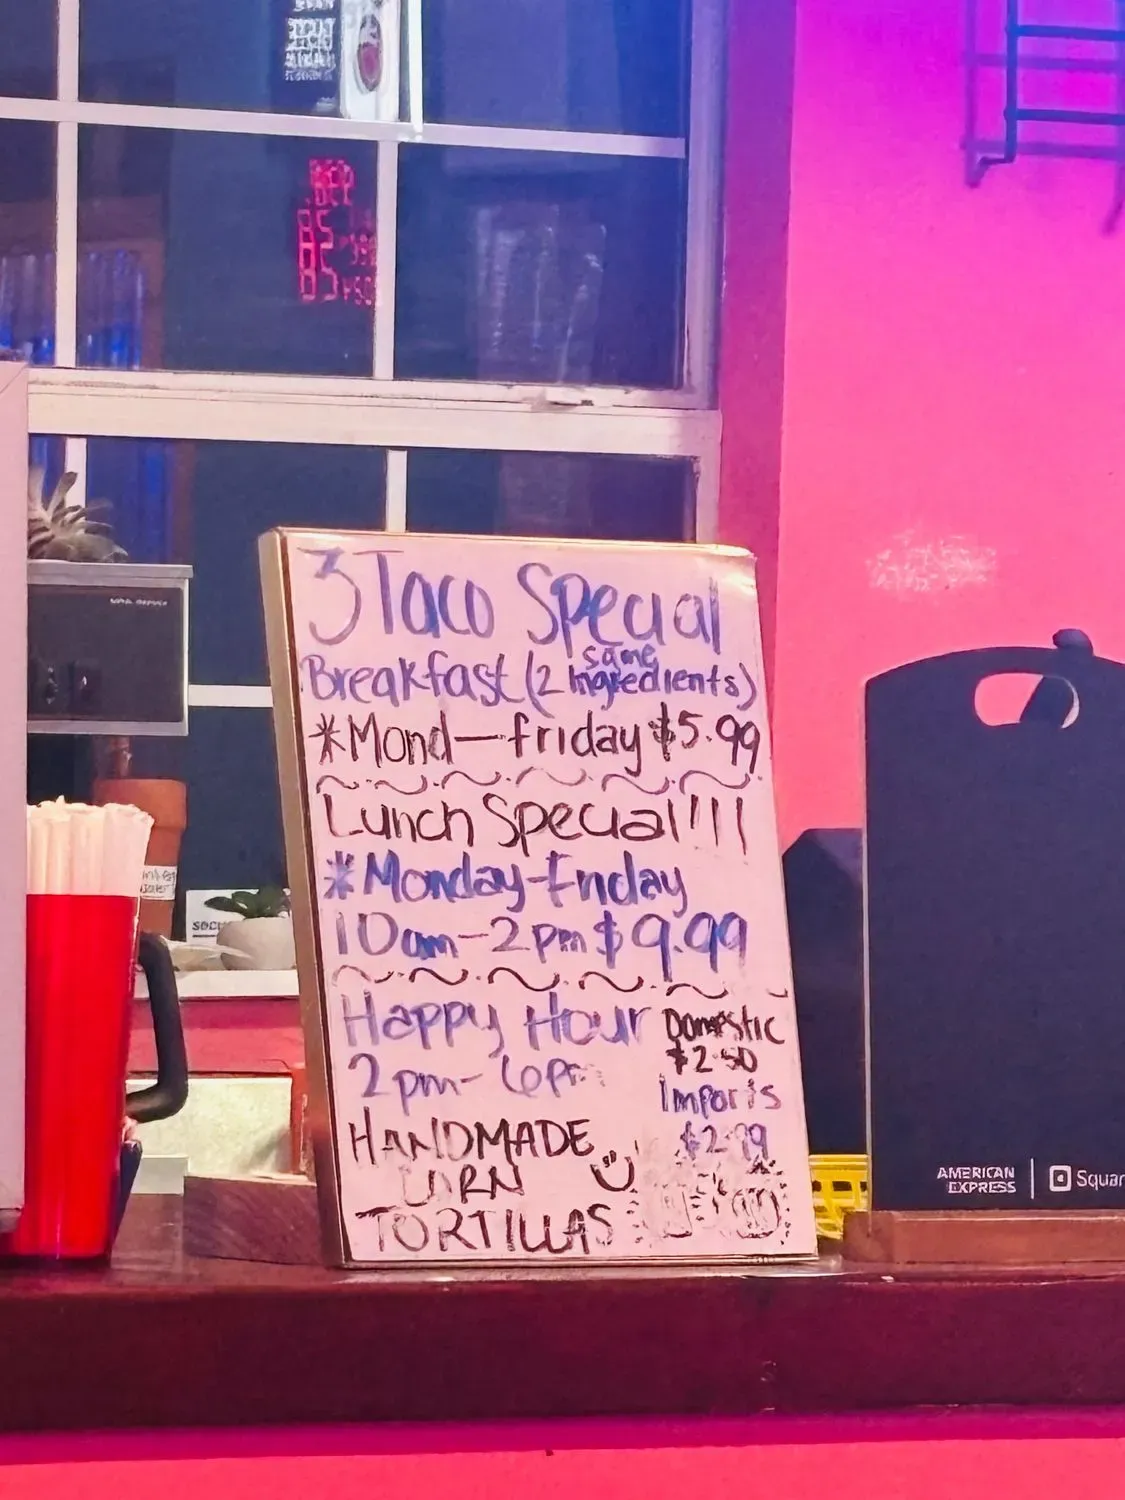 3 Taco Special
Breakfast (2 same Ingredients)
*Mond—friday $5.99
Lunch Special!!!
*Monday-Friday
10am-2pm $9.99
Happy Hour
2pm-6pm
Domestic
$2.50
Imports
$2.99
HANDMADE
CORN
TORTILLAS
AMERICAN
EXPRESS
Squar